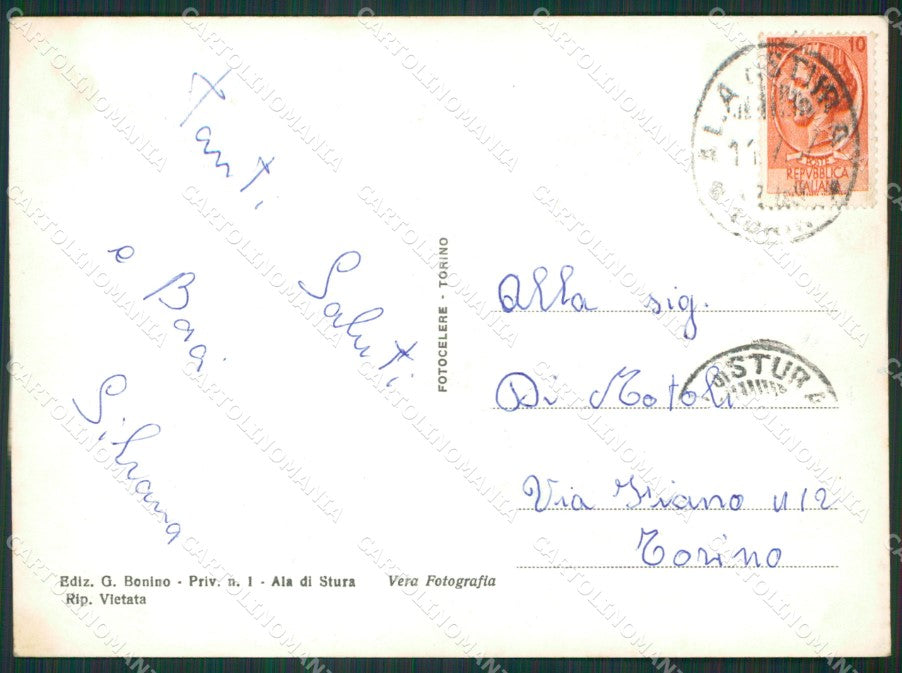 Tanti
Saluti
e Baci
Silvana
Ediz. G. Bonino - Priv. n. 1 - Ala di Stura Vera Fotografia
Rip. Vietata
FOTOCELERE - TORINO
10
POSTE
REPVBBLICA
ITALIANA
ALA DI STURA
11
Alla sig.
Di Motoli
STURA
Via
Torino
CARTOLINOMANIA